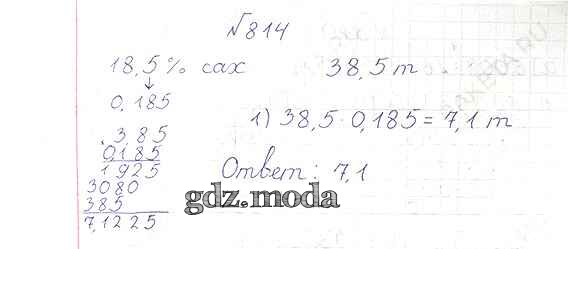 №814
18,5% сах 38,5 т
↓
0,185
1) 38,5 · 0,185 = 7,1 т
3,85
0,185
1925
3080
385
7,1225
Ответ: 7,1
gdz.moda